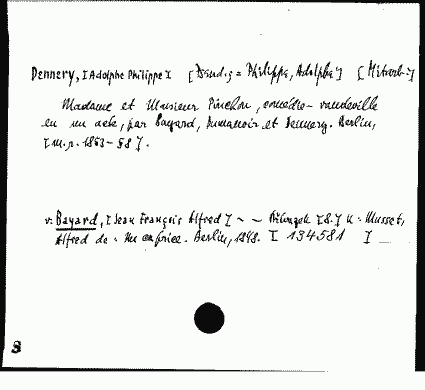 Dennery, [Adolphe Philippe] [Pseud. : Philippe, Adolphe] [Mitarb.]
Madame et Monsieur Pinchon, comédie-vaudeville
en un acte, par Bayard, Dumanoir et Dennery. Berlin,
[18 - 58].
v. Bayard, [Jean François Alfred] ~ [8.] Musset,
Alfred de. Un caprice. Berlin, 1848. [134581]
8